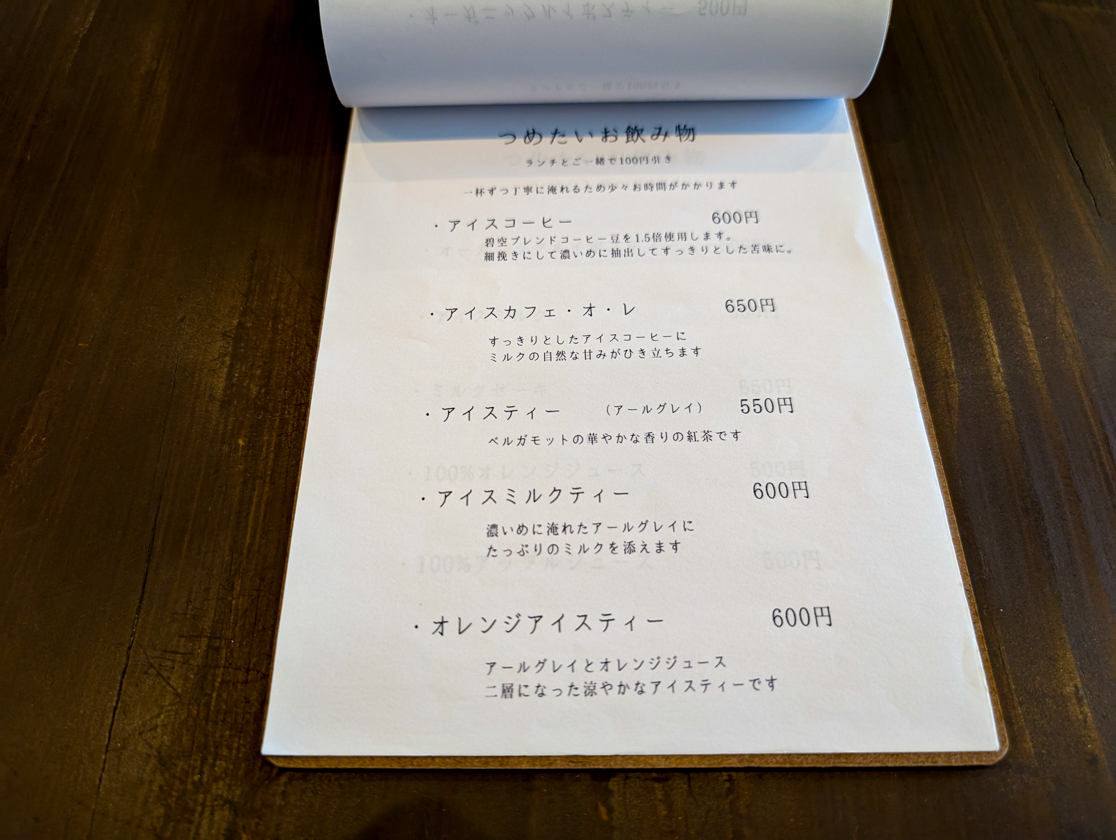 つめたいお飲み物
ランチとご一緒で100円引き
一杯ずつ丁寧に淹れるため少々お時間がかかります
・アイスコーヒー 600円
碧空ブレンドコーヒー豆を1.5倍使用します。
細挽きにして濃いめに抽出してすっきりとした苦味に。
・アイスカフェ・オ・レ 650円
すっきりとしたアイスコーヒーに
ミルクの自然な甘みがひき立ちます
・アイスティー （アールグレイ） 550円
ベルガモットの華やかな香りの紅茶です
・アイスミルクティー 600円
濃いめに淹れたアールグレイに
たっぷりのミルクを添えます
・オレンジアイスティー 600円
アールグレイとオレンジジュース
二層になった涼やかなアイスティーです